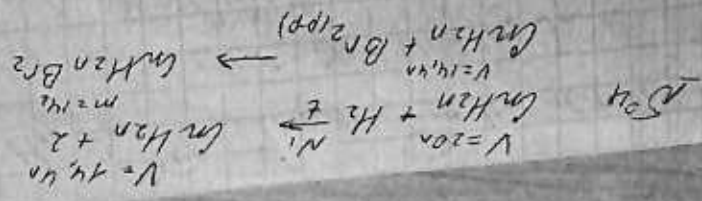 №4
V=20л V=14,4л
CnH2n + H2 Ni t → CnH2n+2
V=14,4л m=142
CnH2n + Br2(рр) → CnH2nBr2